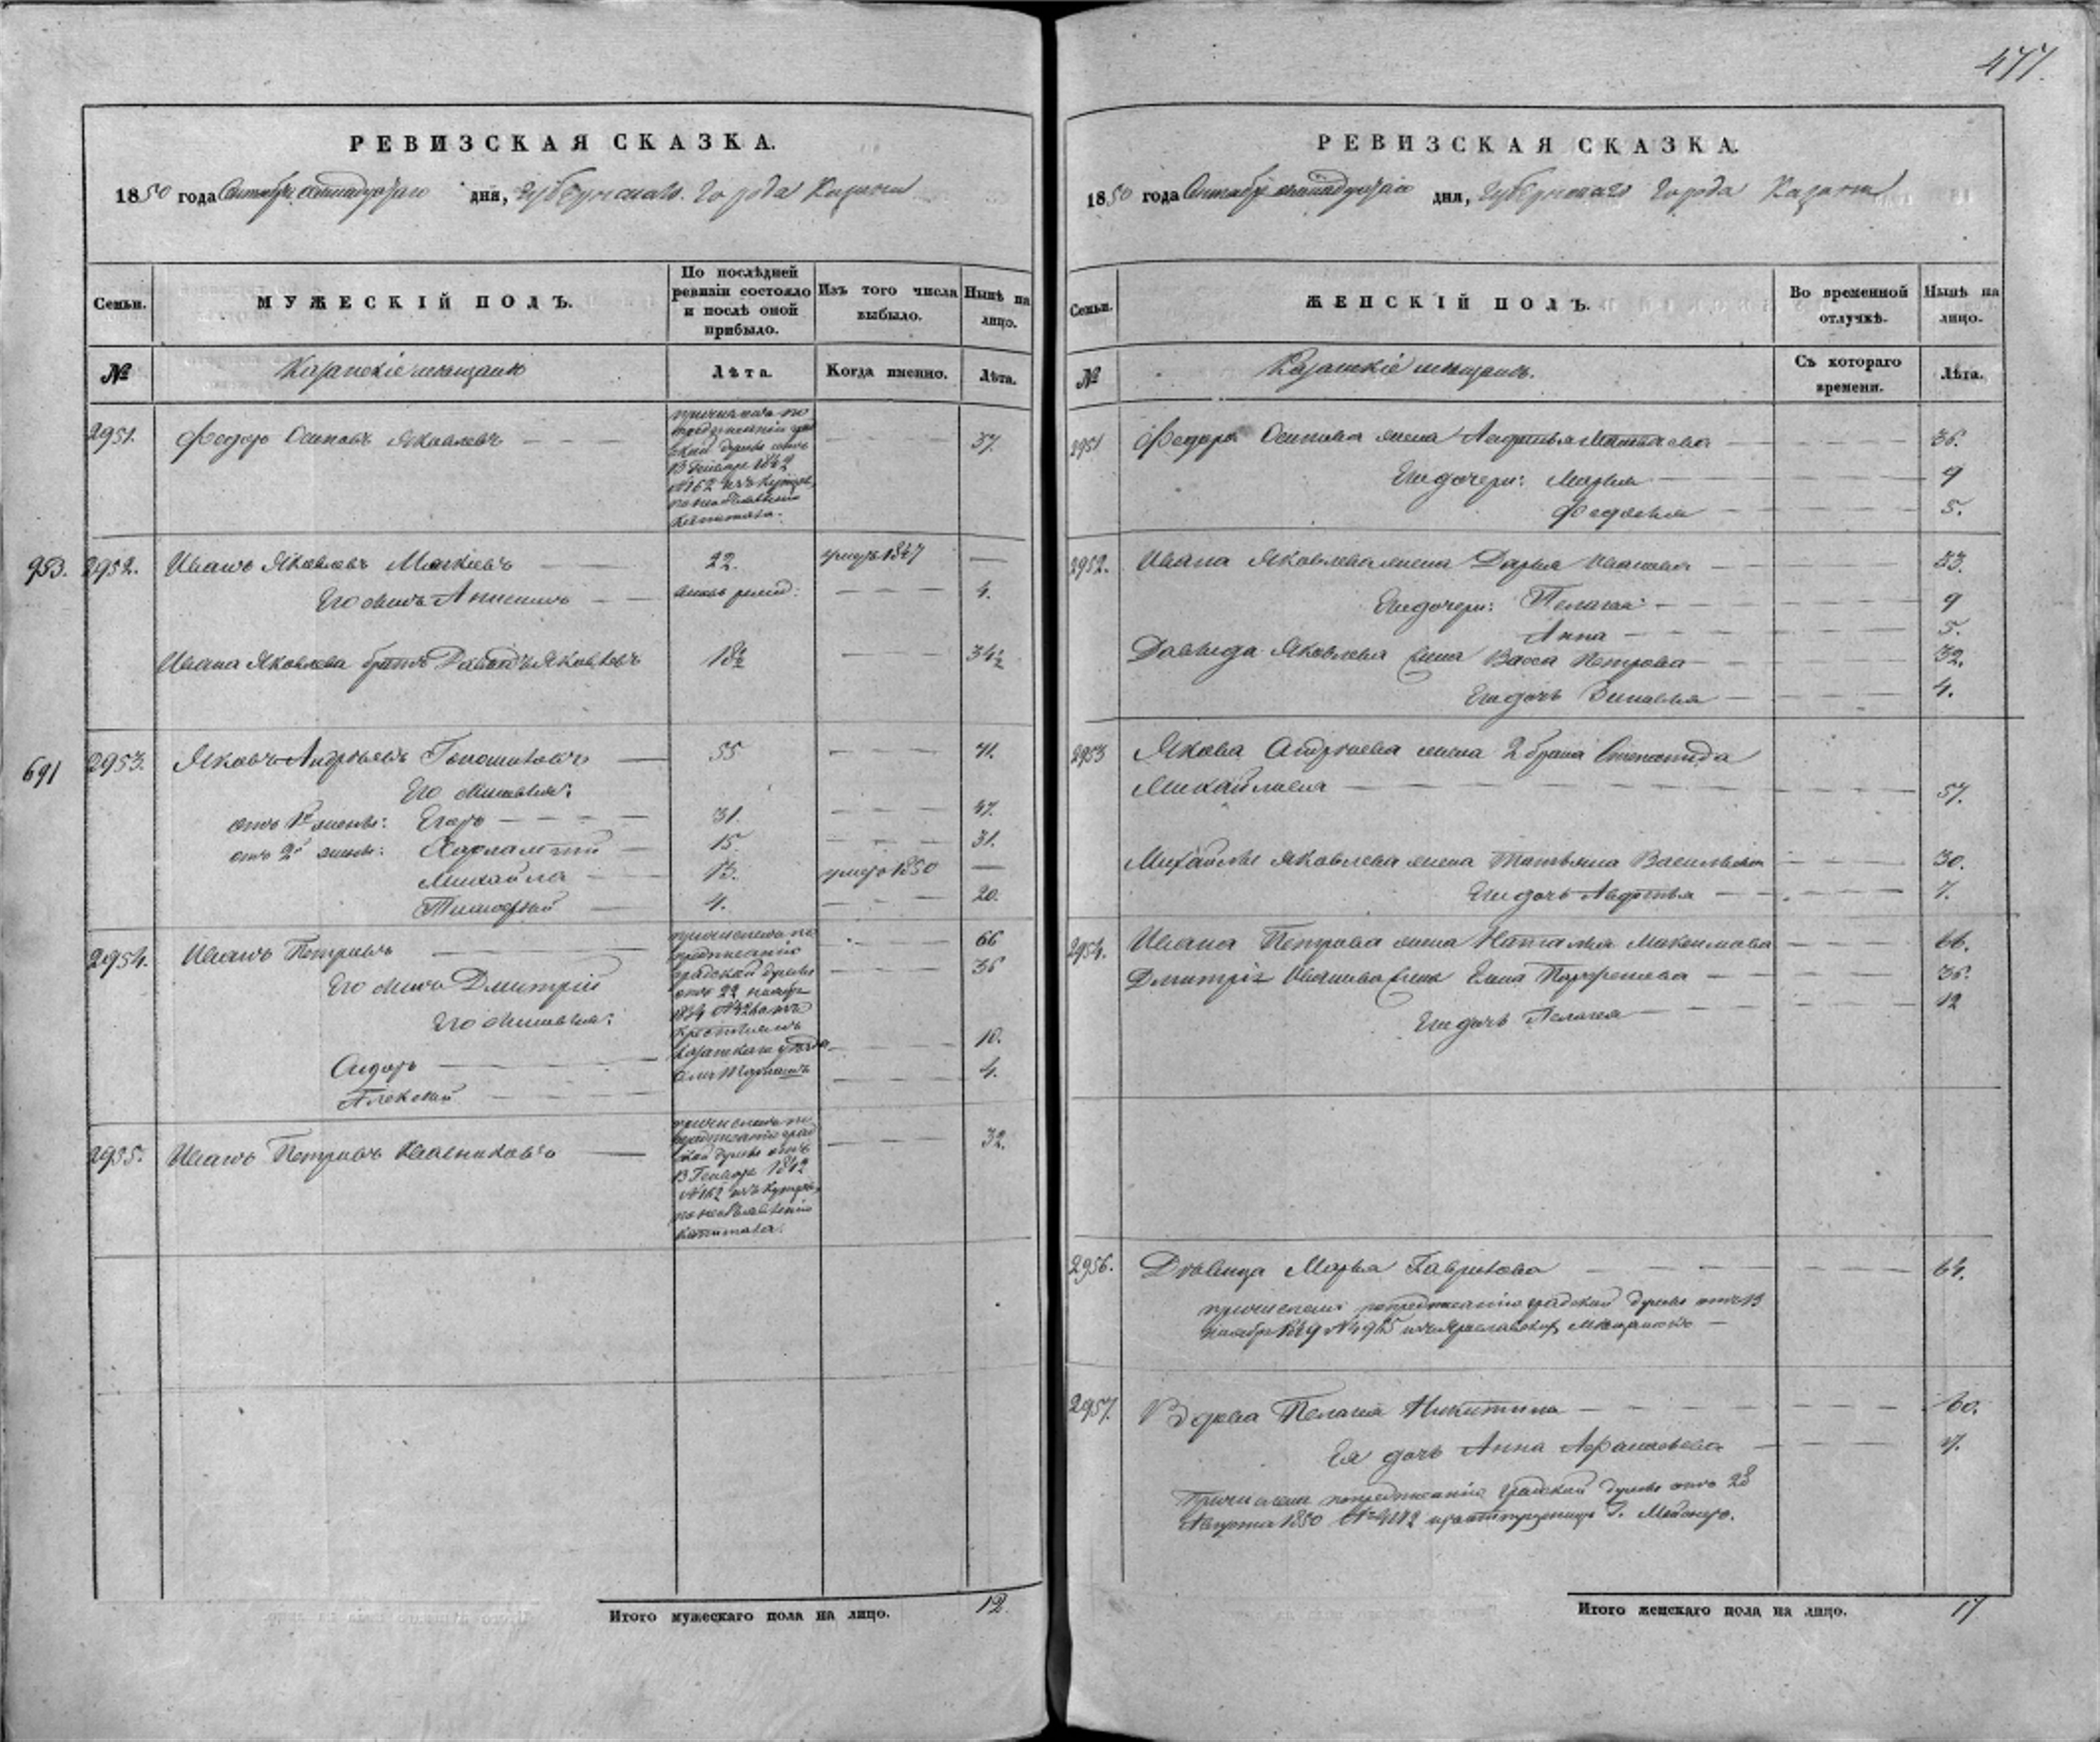 477.
РЕВИЗСКАЯ СКАЗКА.
1850 года Сентября дня, Губернскаго города Казани
Семьи. МУЖЕСКІЙ ПОЛЪ. По послѣдней ревизіи состояло и послѣ оной прибыло. Изъ того числа выбыло. Нынѣ на лицо.
№ Казанскіе мещане Лѣта. Когда именно. Лѣта.
2951. Федоръ Осиповъ Яковлевъ 37.
причисленъ по
предписанію град
ской думы отъ
13 Генваря 1842
№ 162 изъ купцовъ
по необъявленію
капитала.
953. 2952. Иванъ Яковлевъ 22. умеръ 1847 —
Его сынъ Анисимъ 4.
Ивана Яковлева братъ Давыдъ Яковлевъ 18½ 34½
691 2953. Яковъ Андреевъ 55 71.
Его сыновья:
отъ 1й жены: Егоръ 31. 47.
отъ 2й жены: Харлампій 15. 31.
Михайла 13. умеръ 1850 —
Тимофей 4. 20.
2954. Иванъ Петровъ 66
Его сынъ Дмитрій 36
Его сыновья:
Сидоръ 10.
Алексей 4.
причислены по
предписанію
градской думы
отъ 22 ноября
крестьянъ
Казанскаго уезда
2955. Иванъ Петровъ 32.
причисленъ по
предписанію град
ской думы отъ
13 Генваря 1842
№ 162 изъ купцовъ
по необъявленію
капитала.
Итого мужескаго пола на лицо. 12.
РЕВИЗСКАЯ СКАЗКА.
1850 года Сентября дня, Губернскаго города Казани
Семьи. ЖЕНСКІЙ ПОЛЪ. Во временной отлучкѣ. Нынѣ на лицо.
№ Казанскіе мещане. Съ котораго времени. Лѣта.
2951 Федора Осипова жена 36.
Ея дочери: Марья 9
Федосья 5.
2952. Ивана Яковлева жена Дарья Иванова 33.
Ея дочери: Пелагея 9
Анна 5.
Давыда Яковлева жена Васса Петрова 32.
Ея дочь Зиновья 4.
2953 Якова Андреева жена 2 брака Степанида
Михайлова 57.
Михайлы Яковлева жена Татьяна Васильева 30.
Ея дочь Авдотья 7.
2954. Ивана Петрова жена Наталья Максимова 66.
Дмитрія Иванова жена Елена Парфенова 36.
Ея дочь Пелагея 12
2956. Девица Марья Гаврилова 64.
причислена по предписанію градской думы отъ 13
ноября 1849 № 4985 изъ Ярославскихъ мещанокъ
2957. Вдова Пелагея Никитина 60.
Ея дочь Анна Афанасьева
Причислены по предписанію градской думы отъ 28
Августа 1850
Итого женскаго пола на лицо. 17